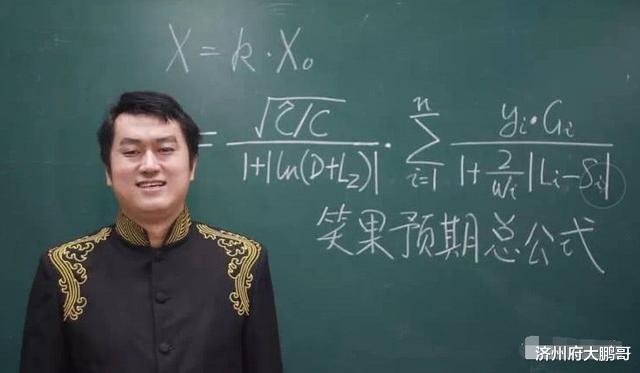 X=k·X₀
= √(Ĉ/C) / 1+|ln(D+L₂)| · ∑ᵢ₌₁ⁿ yᵢ·Gᵢ / 1+2/wᵢ|Lᵢ-Sᵢ|
笑果预期总公式
济州府大鹏哥